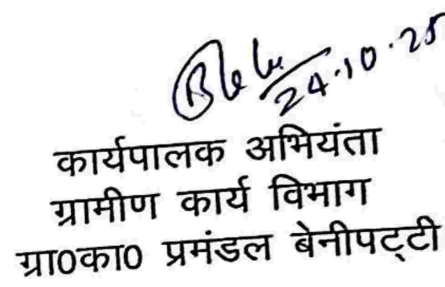 24.10.25
कार्यपालक अभियंता
ग्रामीण कार्य विभाग
ग्रा0का0 प्रमंडल बेनीपट्टी